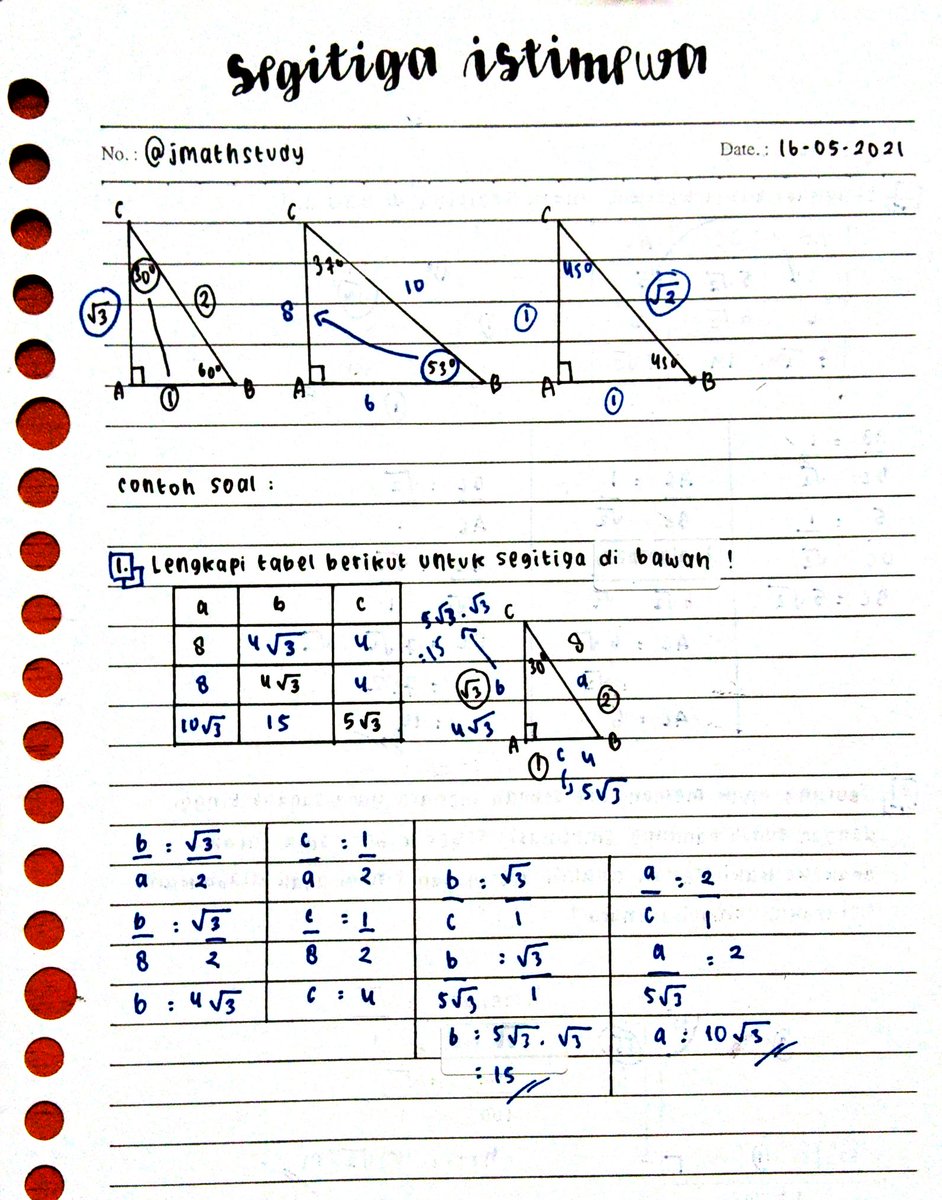 segitiga istimewa
No. : @jmathstudy
Date. : 16-05-2021
C
30°
√3
2
60°
A
1
B
C
37°
10
8
53°
A
6
B
C
45°
√2
1
45°
A
1
B
contoh soal :
1. Lengkapi tabel berikut untuk segitiga di bawah !
a b c
8 4√3 4
8 4√3 4
10√3 15 5√3
5√3 . √3
: 15
C
8
30°
√3 b
a
2
4√3
A
B
1
c 4
5√3
b : √3
a 2
b : √3
8 2
b : 4√3
c : 1
a 2
c : 1
8 2
c : 4
b : √3
c 1
b : √3
5√3 1
b : 5√3 . √3
: 15
a : 2
c 1
a : 2
5√3
a : 10√3